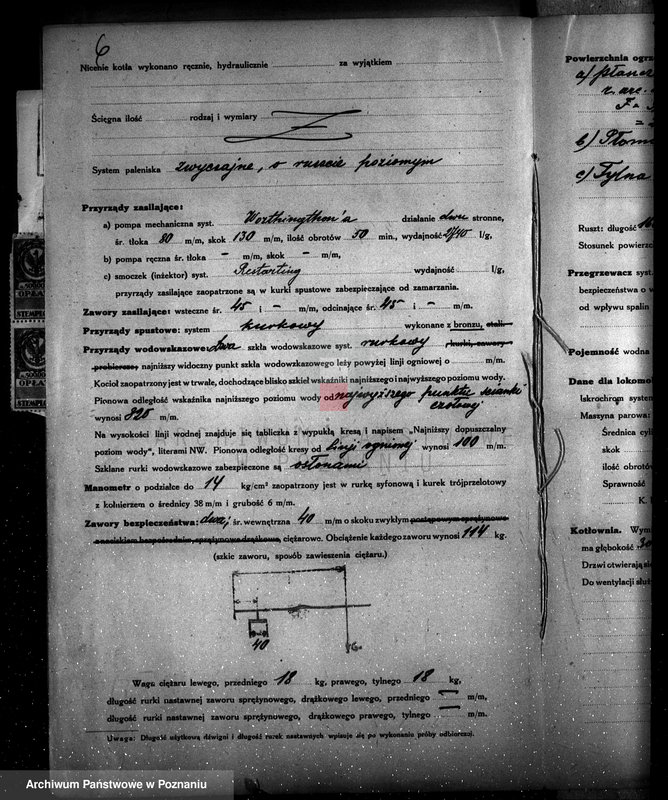 6
Nicenie kotła wykonano ręcznie, hydraulicznie za wyjątkiem
Ścięgna ilość rodzaj i wymiary
System paleniska zwyczajne, o ruszcie poziomym
Przyrządy zasilające:
a) pompa mechaniczna syst. Worthington'a działanie dwu stronne,
śr. tłoka 80 m/m, skok 130 m/m, ilość obrotów 50 min., wydajność l/g,
b) pompa ręczna śr. tłoka – m/m, skok – m/m,
c) smoczek (inżektor) syst. Restarting wydajność l/g,
przyrządy zasilające zaopatrzone są w kurki spustowe zabezpieczające od zamarzania.
Zawory zasilające: wsteczne śr. 45 i – m/m, odcinające śr. 45 i – m/m.
Przyrządy spustowe: system kurkowy wykonane z bronzu, stali
Przyrządy wodowskazowe: dwa szkła wodowskazowe syst. rurkowy (kurki, zawory
probiercze), najniższy widoczny punkt szkła wodowskazowego leży powyżej linii ogniowej o m/m.
Kocioł zaopatrzony jest w trwałe, dochodzące blisko szkieł wskaźniki najniższego i najwyższego poziomu wody.
Pionowa odległość wskaźnika najniższego poziomu wody od najwyższego punktu ścianki
czołowej
wynosi 825 m/m.
Na wysokości linji wodnej znajduje się tabliczka z wypukłą kresą i napisem „Najniższy dopuszczalny
poziom wody", literami NW. Pionowa odległość kresy od linji ogniowej wynosi 100 m/m.
Szklane rurki wodowskazowe zabezpieczone są osłonami
Manometr o podziałce do 14 kg/cm² zaopatrzony jest w rurkę syfonową i kurek trójprzelotowy
z kołnierzem o średnicy 38 m/m i grubość 6 m/m.
Zawory bezpieczeństwa: dwa; śr. wewnętrzna 40 m/m o skoku zwykłym postępowym sprężynowe
naciskiem bezpośrednim, sprężynowe drążkowe, ciężarowe. Obciążenie każdego zaworu wynosi 114 kg.
(szkic zaworu, sposób zawieszenia ciężaru.)
40
Waga ciężaru lewego, przedniego 18 kg, prawego, tylnego 18 kg,
długość rurki nastawnej zaworu sprężynowego, drążkowego lewego, przedniego – m/m,
długość rurki nastawnej zaworu sprężynowego, drążkowego prawego, tylnego – m/m.
Uwaga: Długość użytkową dźwigni i długość rurek nastawnych wpisuje się po wykonaniu próby odbiorczej.
Powierzchnia ogrz
a)
b)
c) Tylna
Ruszt: długość
Stosunek powierzc
Przegrzewacz syst.
bezpieczeństwa o w
od wpływu spalin
Pojemność wodna
Dane dla lokomo
Iskrochron system
Maszyna parowa:
Średnica cyli
skok
ilość obrotów
Sprawność
K.
Kotłownia. Wym
ma głębokość
Drzwi otwierają się
Do wentylacji służ
Archiwum Państwowe w Poznaniu